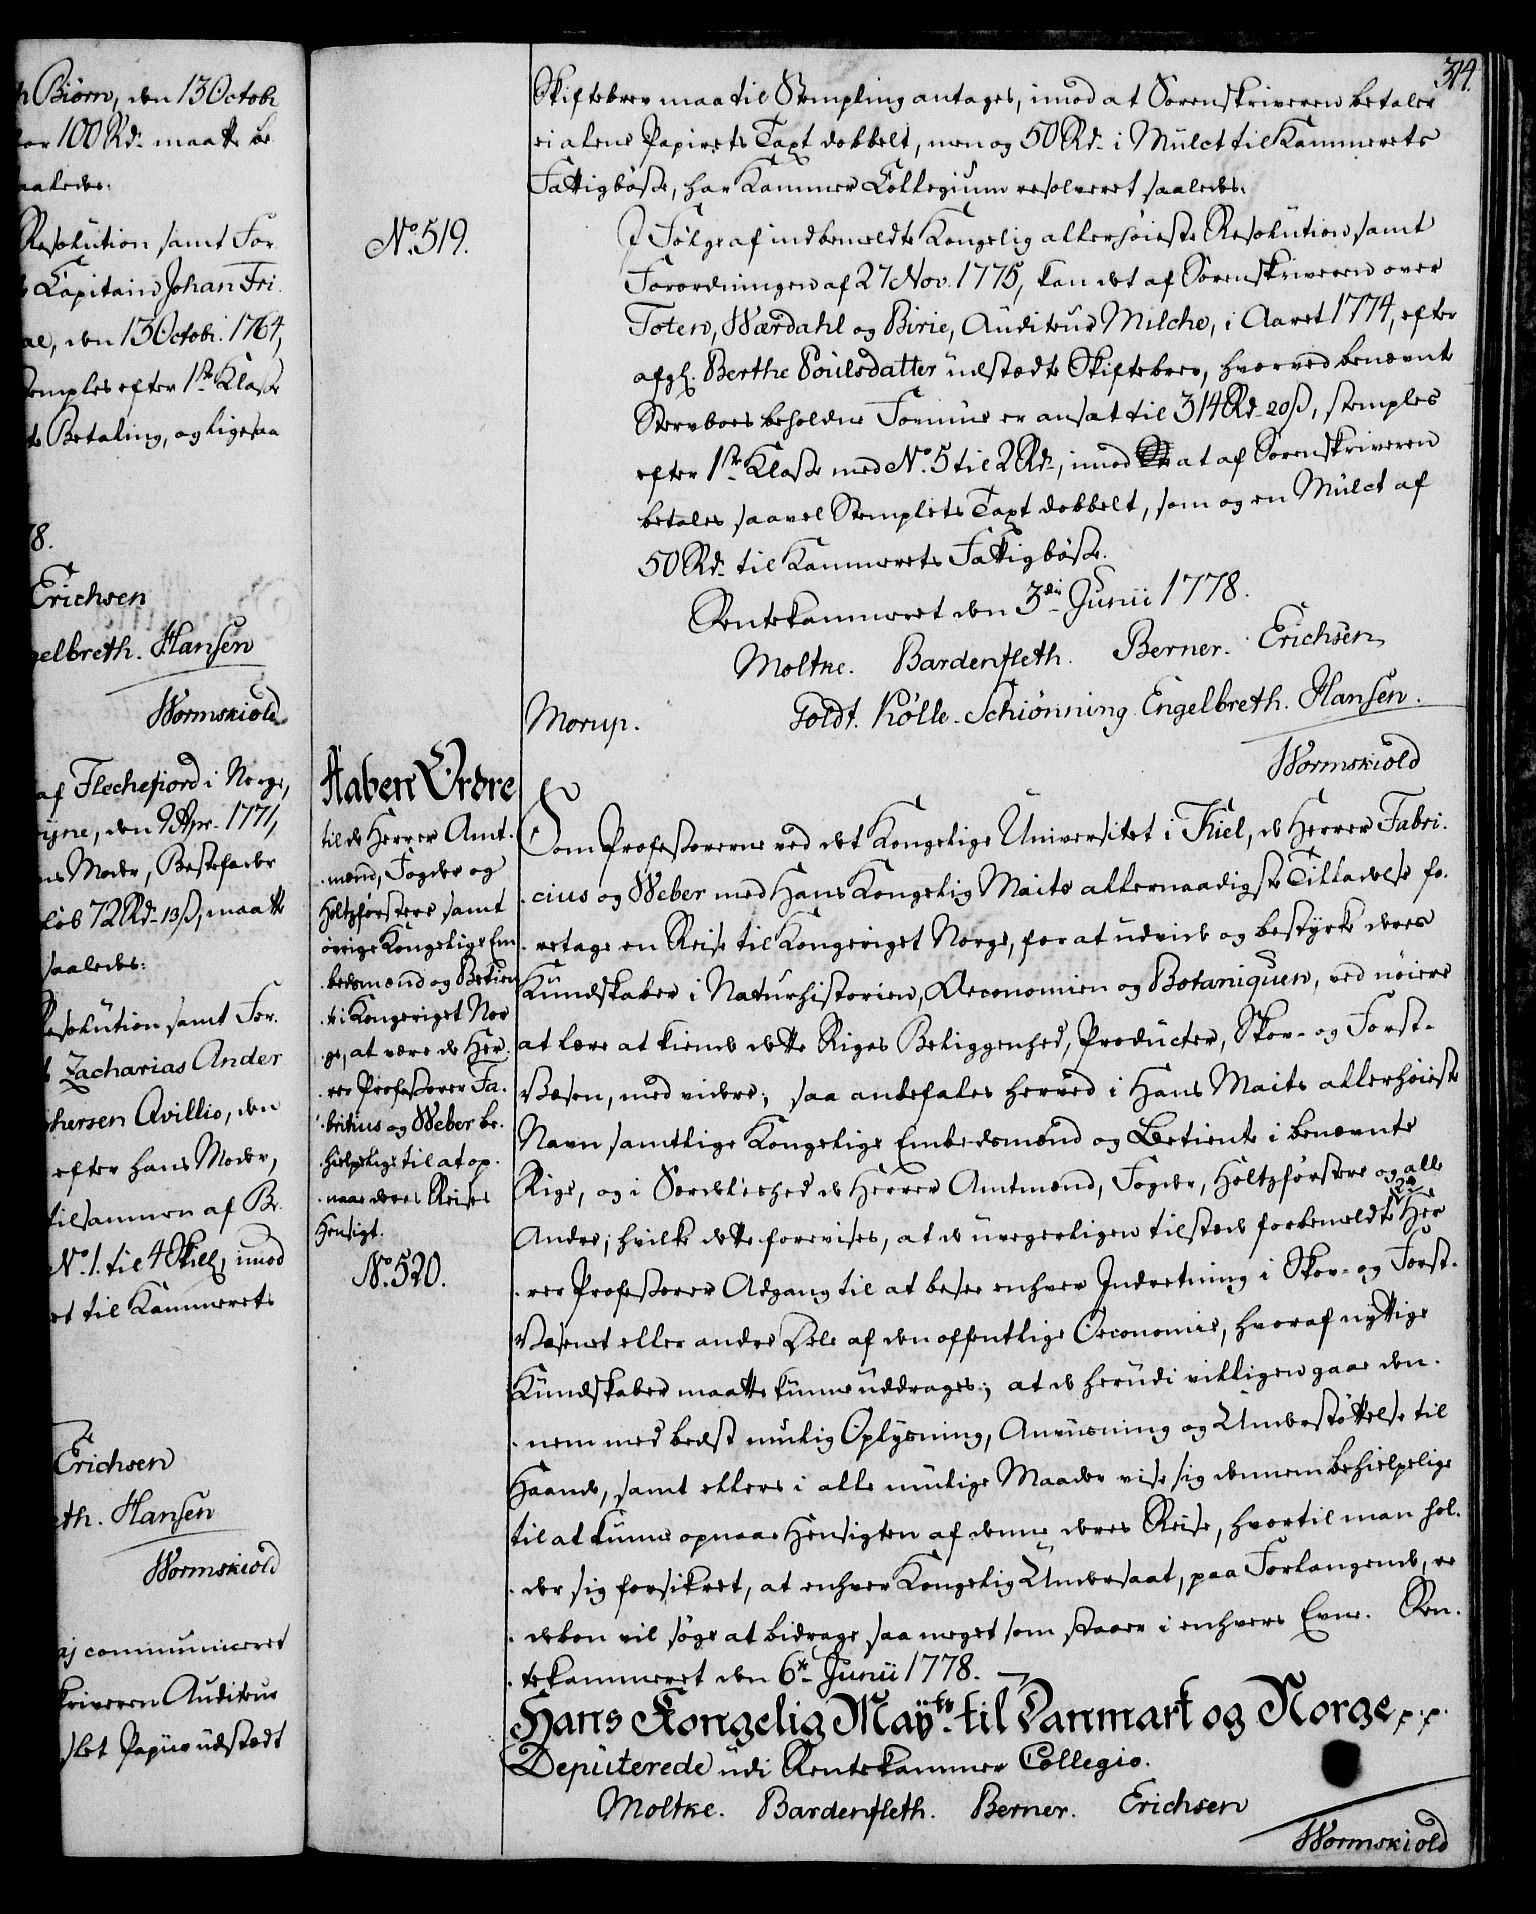 h Biørn, den 13 Octobr
for 100 Rd. maatte be
saaledes:
Resolution samt For
Capitain Johan Fri
al, den 13 Octobr. 1764,
stemples efter 1ste Klasse
te Betaling, og ligesaa
78.
Erichsen
gelbreth. Hansen
Wormskiold
af Flechefiord i Norge,
øyne, den 9 Apr. 1771,
ns Moder, Bestefader
løb 72 Rd. 13 ß, maatte
saaledes:
Resolution samt For.
Zacharias Ander
hersen Avillio, den
efter hans Moder,
tilsammen af B
No. 1. til 4 Skill, imod
et til Kammerets
Erichsen
eth. Hansen
Wormskiold
aj communiceret
skriveren Auditeur
slet Papiir udstædt
314.
Skiftebrev maa til Stempling antages, imod at Sorenskriveren betaler
ei alene Papirets Taxt dobbelt, men og 50 Rd. i Mulct til Kammerets
Fattigbøsse, har Kammer Collegium resolveret saaledes:
No. 519.
I Følge af indbemeldte Kongelig allerhøieste Resolution samt
Forordningen af 27 Nov. 1775, kan det af Sorenskriveren over
Toten, Wardahl og Birie, Auditeur Milche, i Aaret 1774, efter
afgl. Berthe Poulsdatter udstædte Skiftebrev, hvorved benævnte
Stervboes beholdne Formue er ansat til 314 Rd. 20 ß, stemples
efter 1ste Klasse med No. 5 til 2 Rd., imod at af Sorenskriveren
betales saavel Stemplets Taxt dobbelt, som og en Mulct af
50 Rd. til Kammerets Fattigbøsse.
Rentekammeret den 3die Junii 1778.
Moltke. Bardenfleth. Berner. Erichsen
Morup. Goldt. Kølle. Schiønning Engelbreth. Hansen.
Wormskiold
Aaben Ordre
til de Herrer Amt-
mænd, Fogder og
Holtzførstere samt
øvrige Kongelige Em
bedsmænd og Betien
te i Kongeriget Nor
ge, at være de Her.
rer Professorer Fa.
britius og Weber be.
hielpelige til at op.
naae deres Reises
Hensigt.
No. 520.
Som Professorerne ved det Kongelige Universitet i Kiel, de Herrer Fabri.
cius og Weber med Hans Kongelig Maits allernaadigste Tilladelse fo.
retage en Reise til Kongeriget Norge, for at udvide og bestyrke deres
Kundskaber i Naturhistorien, Oeconomien og Botaniquen, ved nøiere
at lære at kiende dette Riges Beliggenhed, Producter, Skov- og Forst-
Væsen, med videre; saa anbefales herved i Hans Maits allerhøieste
Navn samtlige Kongelige Embedsmænd og Betiente i benævnte
Rige, og i Særdeleshed de Herrer Amtmænd, Fogder, Holtzførstere og alle
Andre, hvilke dette forevises, at de uvegerligen tilstæde forbemeldte Her
rer Professorer Adgang til at besee enhver Indretning i Skov- og Forst-
Væsenet eller andre Dele af den offentlige Oeconomie, hvoraf nyttige
Kundskaber maatte kunne uddrages; at de herudi villigen gaae den-
nem med bedst mulig Oplysning, Anviisning og Understøttelse til
Haande, samt ellers i alle mulige Maader vise sig dennem behielpelige
til at kunne opnaae Hensigten af denne deres Reise, hvortil man hol-
der sig forsikret, at enhver Kongelig Undersaat, paa Forlangende, re
debon vil søge at bidrage saa meget som staaer i enhvers Evne. Ren.
tekammeret den 6te Junii 1778.
Hans Kongelig Mayts. til Danmark og Norge p. p.
Deputerede udi Rentekammer Collegio.
Moltke. Bardenfleth. Berner. Erichsen
Wormskiold